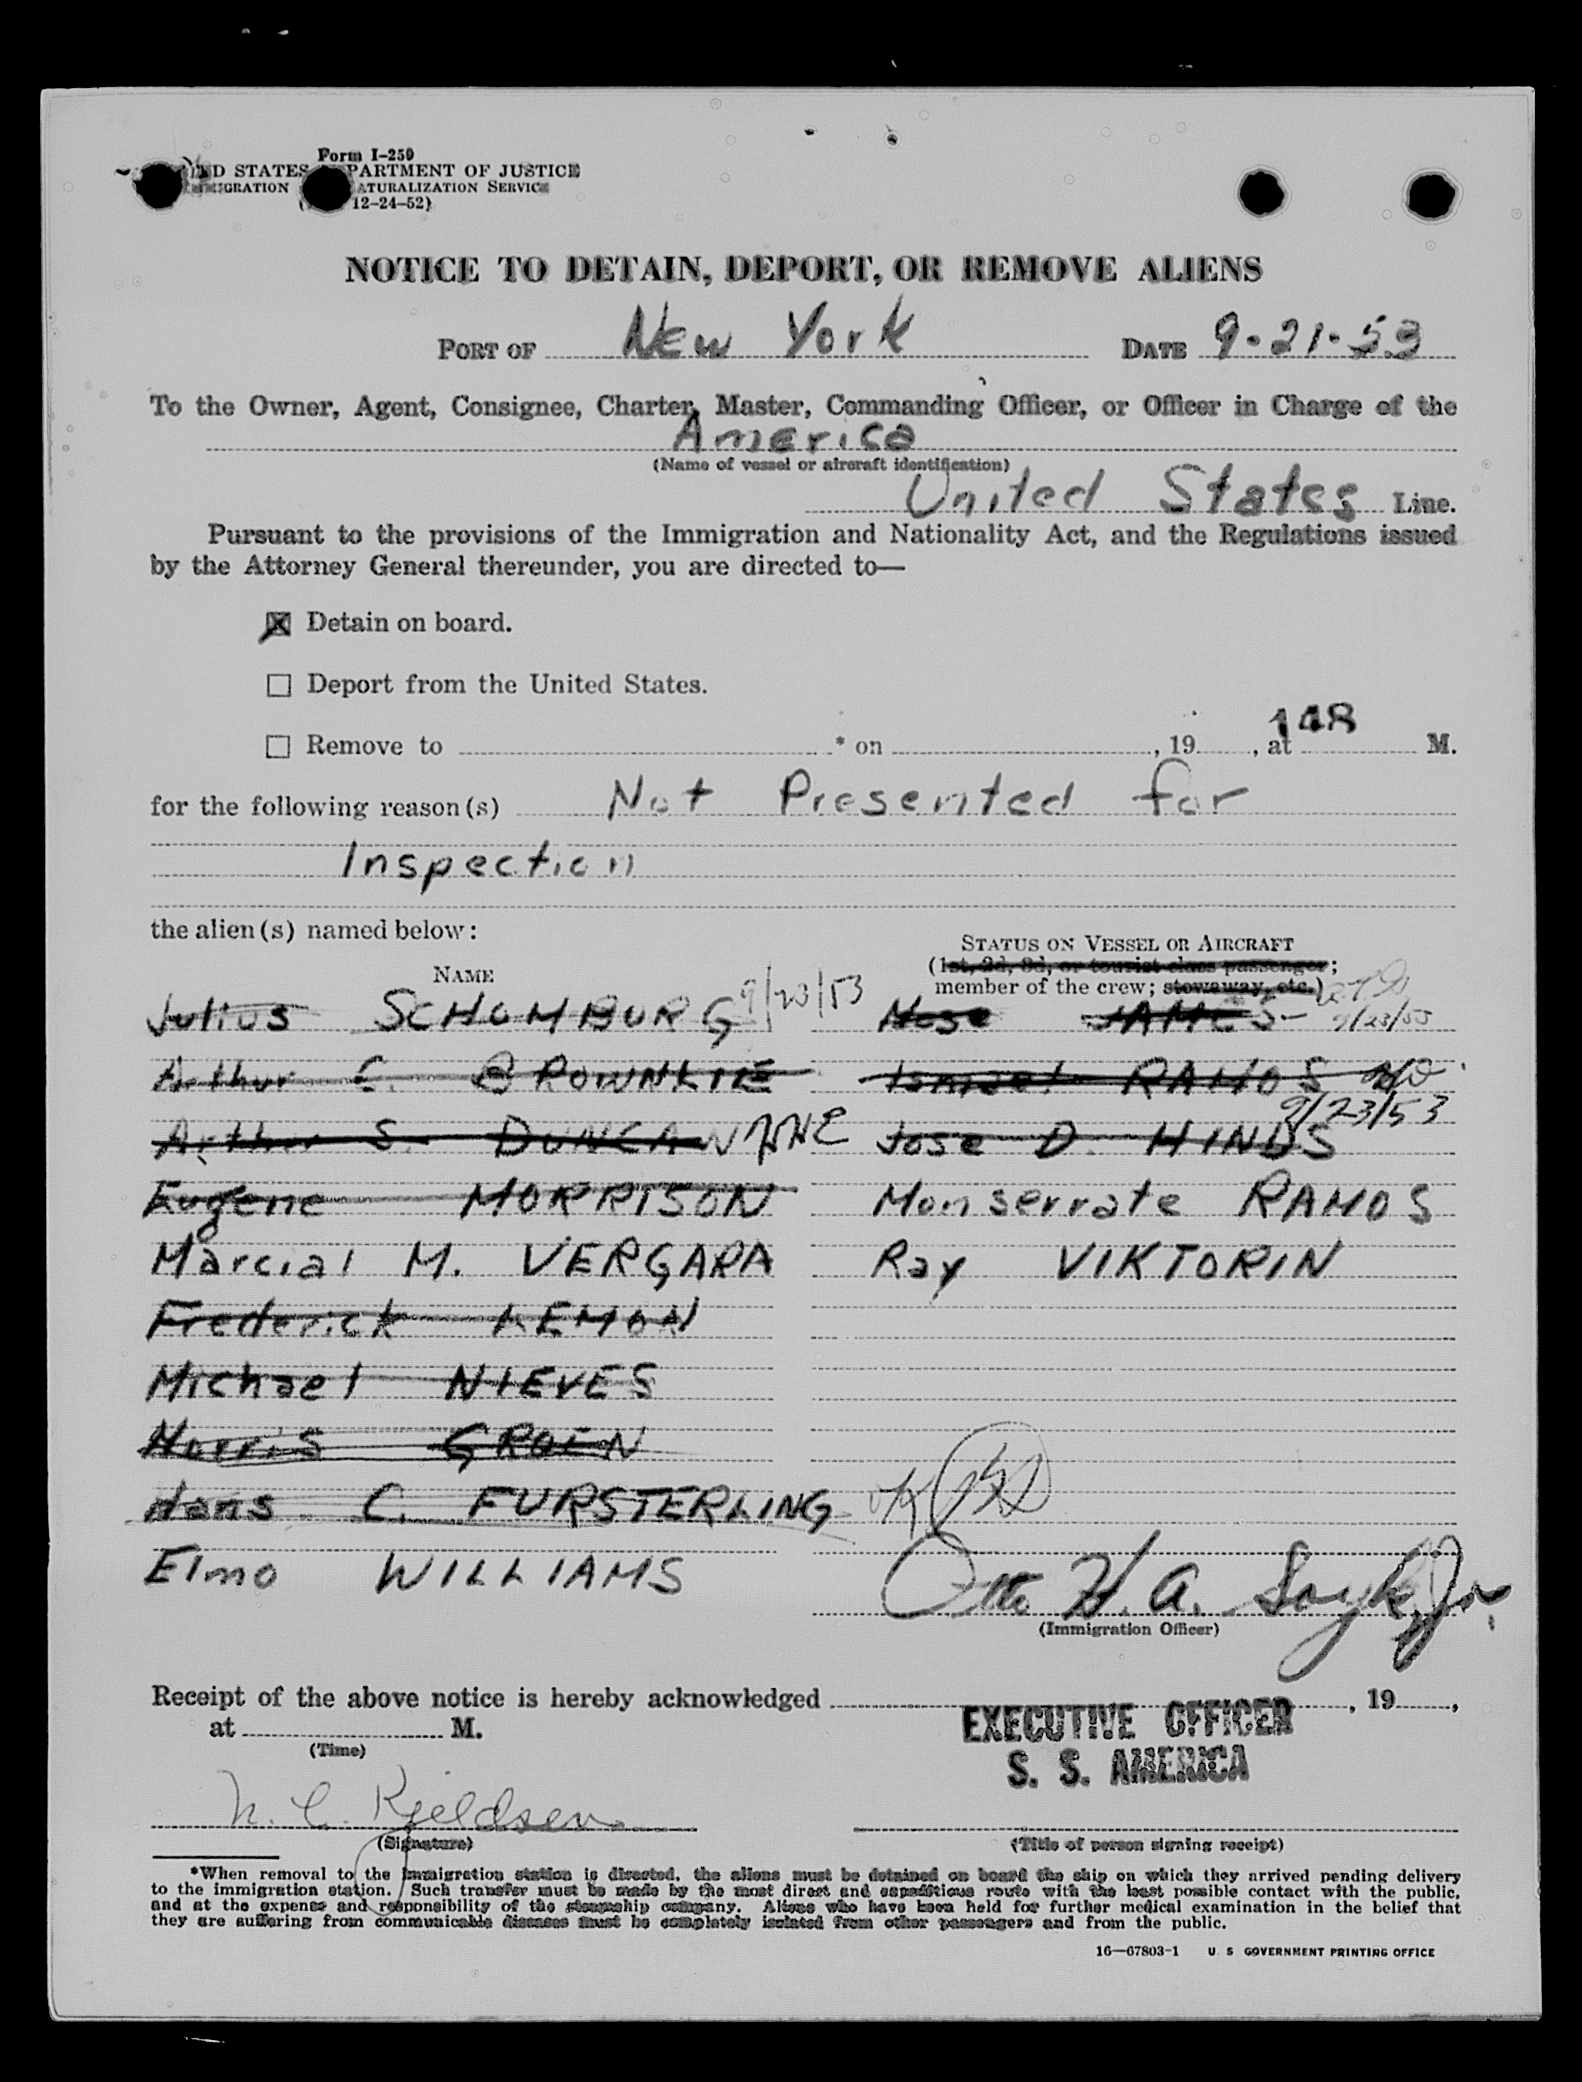 Form I-259
D STATES PARTMENT OF JUSTICE
IGRATION ATURALIZATION SERVICE
12-24-52)
NOTICE TO DETAIN, DEPORT, OR REMOVE ALIENS
PORT OF New York DATE 9-21-53
To the Owner, Agent, Consignee, Charter, Master, Commanding Officer, or Officer in Charge of the
America
(Name of vessel or aircraft identification)
United States Line.
Pursuant to the provisions of the Immigration and Nationality Act, and the Regulations issued
by the Attorney General thereunder, you are directed to—
☒ Detain on board.
☐ Deport from the United States.
148
☐ Remove to * on , 19 , at M.
for the following reason(s) Not Presented for
Inspection
the alien(s) named below:
STATUS ON VESSEL OR AIRCRAFT
NAME (1st, 2d, 3d, or tourist class passenger;
member of the crew; stowaway, etc.)
Julius SCHOMBURG 9/23/53 JAMES 9/23/53
Arthur C. BROWNLIE Ismael RAMOS
9/23/53
Arthur S. DUNCAN Jose D. HINDS
Eugene MORRISON Monserrate RAMOS
Marcial M. VERGARA Ray VIKTORIN
Frederick LEMON
Michael NIEVES
Norris GROEN
Hans C. FURSTERLING OK
Elmo WILLIAMS
Otto H. A. Jr.
(Immigration Officer)
Receipt of the above notice is hereby acknowledged , 19 ,
at M. EXECUTIVE OFFICER
(Time) S. S. AMERICA
N. C. Kjeldsen
(Signature) (Title of person signing receipt)
*When removal to the immigration station is directed, the aliens must be detained on board the ship on which they arrived pending delivery
to the immigration station. Such transfer must be made by the most direct and expeditious route with the least possible contact with the public,
and at the expense and responsibility of the steamship company. Aliens who have been held for further medical examination in the belief that
they are suffering from communicable diseases must be completely isolated from other passengers and from the public.
16—67803-1 U S GOVERNMENT PRINTING OFFICE